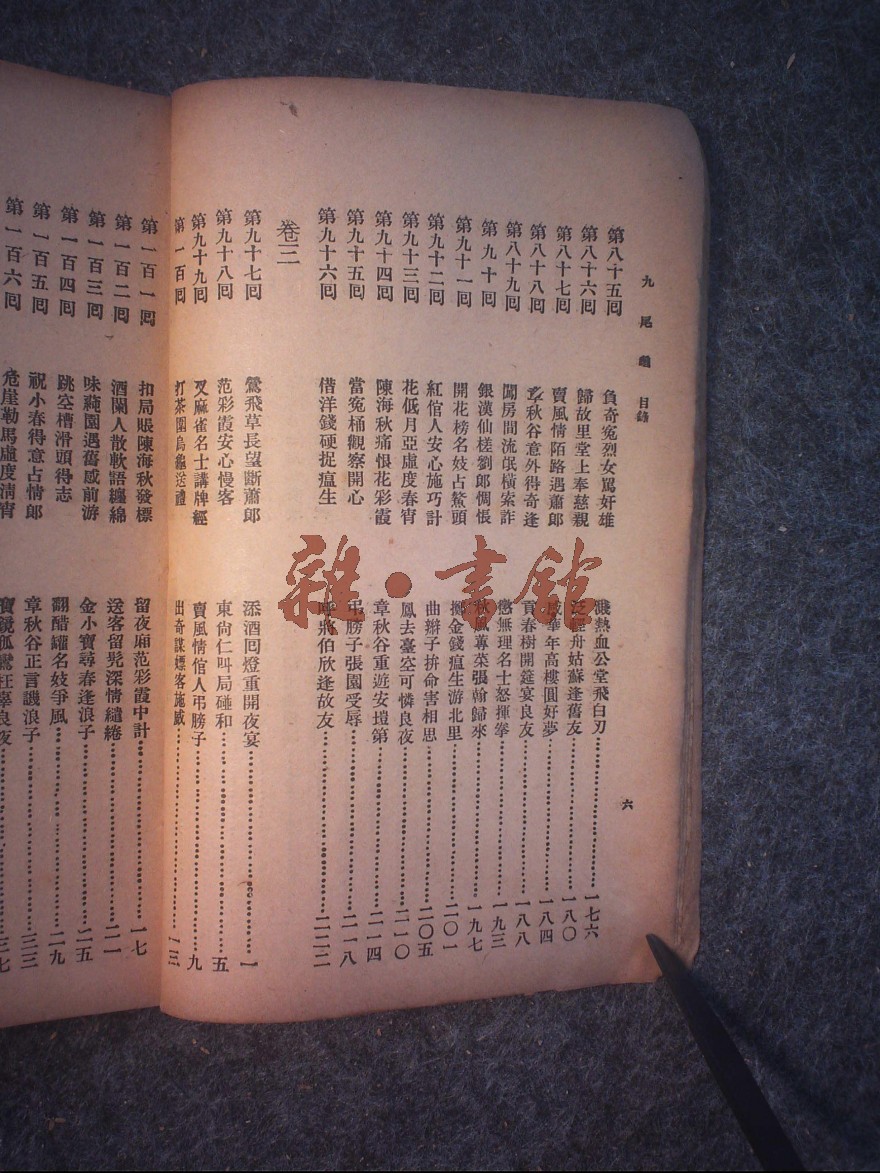 九尾龜 目錄 六
第八十五回 負奇冤烈女罵奸雄 濺熱血公堂飛白刃 一七六
第八十六回 歸故里堂上奉慈親 泛輕舟姑蘇逢舊友 一八〇
第八十七回 賣風情陌路遇蕭郎 華年高樓圓好夢 一八四
第八十八回 章秋谷意外得奇逢 貢春樹開筵宴良友 一八八
第八十九回 鬧房間流氓橫索詐 懲無理名士怒揮拳 一九三
第九十回 銀漢仙槎劉郎惆悵 秋風蓴菜張翰歸來 一九七
第九十一回 開花榜名妓占鰲頭 擲金錢瘟生游北里 二〇一
第九十二回 紅倌人安心施巧計 曲辮子拚命害相思 二〇五
第九十三回 花低月亞虛度春宵 鳳去臺空可憐良夜 二一〇
第九十四回 陳海秋痛恨花彩霞 章秋谷重遊安塏第 二一四
第九十五回 當冤桶觀察開心 弔膀子張園受辱 二一八
第九十六回 借洋錢硬捉瘟生 將伯欣逢故友 二二二
卷三
第九十七回 鶯飛草長望斷蕭郎 添酒回燈重開夜宴 一
第九十八回 范彩霞安心慢客 東尙仁叫局碰和 五
第九十九回 叉麻雀名士講牌經 賣風情倌人弔膀子 九
第一百回 打茶圍烏龜送禮 出奇謀嫖客施威 一三
第一百一回 扣局賬陳海秋發標 留夜廂范彩霞中計 一七
第一百二回 酒闌人散軟語纏綿 送客留髡深情繾綣 二一
第一百三回 味蒓園遇舊感前游 金小寶尋春逢浪子 二五
第一百四回 跳空槽滑頭得志 翻醋罐名妓爭風 二九
第一百五回 祝小春得意占情郎 章秋谷正言譏浪子 三三
第一百六回 危崖勒馬虛度淸宵 寶鏡孤鸞枉辜良夜 三七
雜·書館